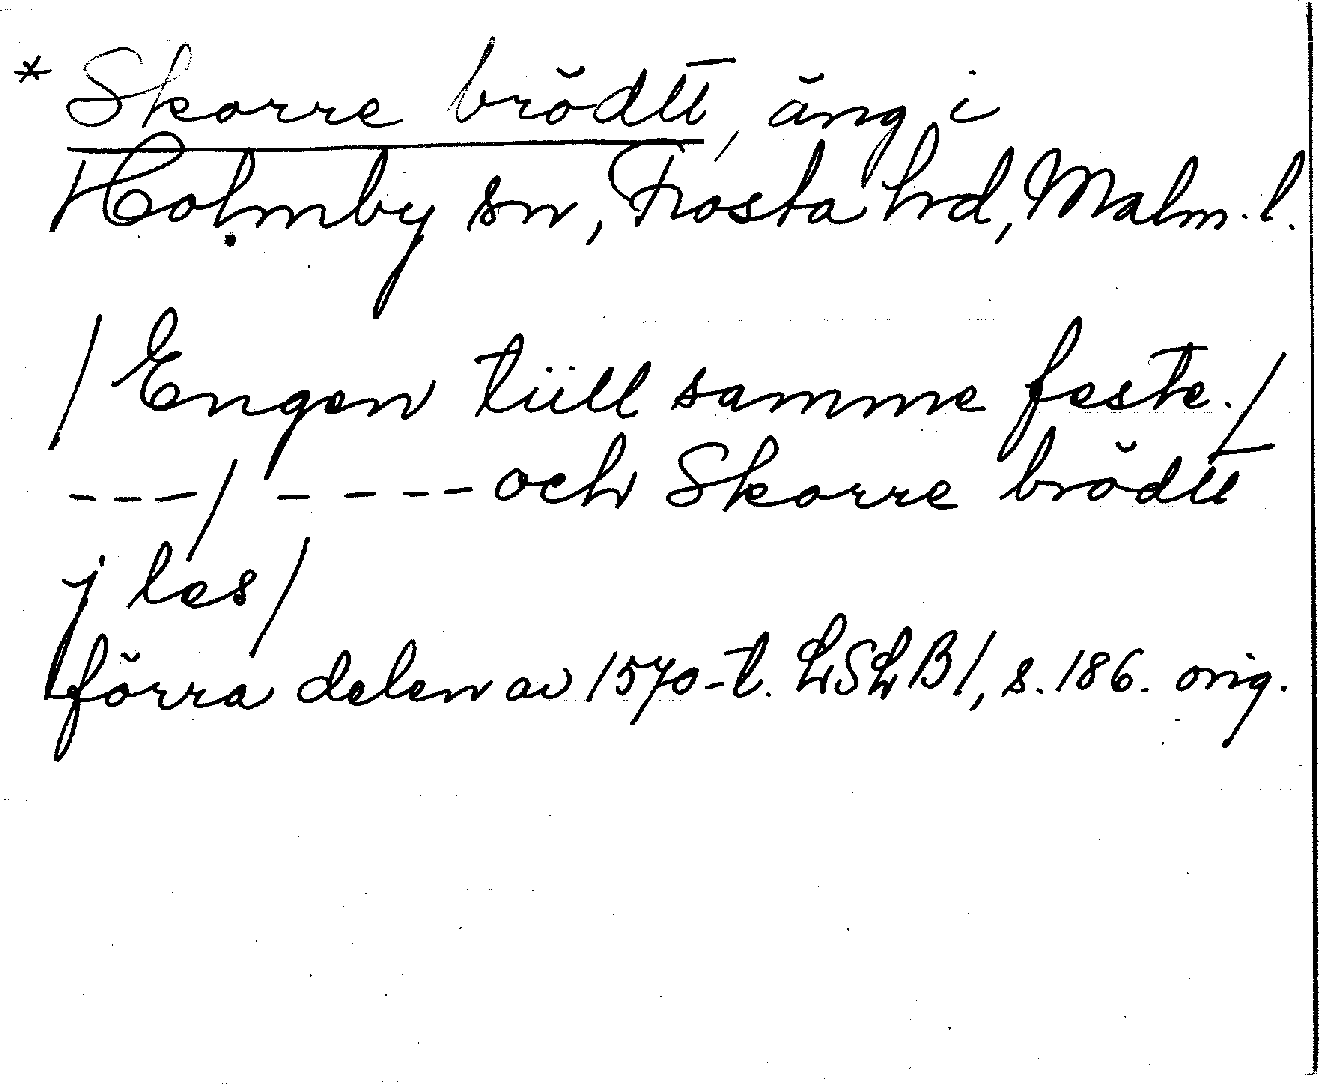 * Skorre brödtt, äng i
Holmby sn, Frosta hd, Malm. l.
/ Engen tiill samme feste. /
---/ ---- och Skorre brödtt
j les /
förra delen av 1570-t. LSLB1, s. 186. orig.